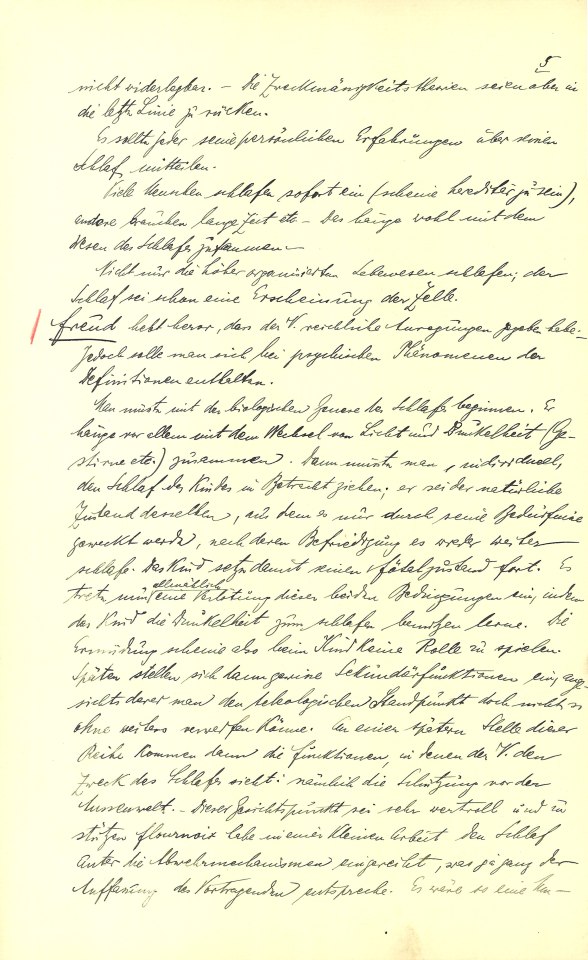 5
nicht widerlegbar. – Die Zweckmässigkeitstheorien seien aber in
die letzte Linie zu rücken.
Es sollte jeder seine persönlichen Erfahrungen über seinen
Schlaf mitteilen.
Viele Menschen schlafen sofort ein (scheine hereditär zu sein),
andere brauchen lange Zeit etc – Das hänge wohl mit dem
Wesen des Schlafes zusammen –
Nicht nur die höher organisierten Lebewesen schlafen; der
Schlaf sei schon eine Erscheinung der Zelle.
Freud hebt hervor, dass der V. reichliche Anregungen gegeben habe –
Jedoch solle man sich, bei psychischen Phänomenen der
Definitionen enthalten.
Man müsste mit der biologischen Genese des Schlafes beginnen. Er
hänge vor allem mit dem Wechsel von Licht und Dunkelheit (Ge-
stirne etc.) zusammen. Dann müsste man, individuell,
den Schlaf des Kindes in Betracht ziehen; er sei der natürliche
Zustand desselben, aus dem es nur durch seine Bedürfnisse
geweckt werde, nach deren Befriedigung es wieder weiter
schlafe. Das Kind setze damit seinen Fötalzustand fort. Es
trete nun allmählich eine Verlötung dieser beiden Bedingungen ein, indem
das Kind die Dunkelheit zum schlafen benutzen lerne. Die
Ermüdung scheine also beim Kind keine Rolle zu spielen.
Später stellen sich dann gewisse Sekundärfunktionen ein, ange-
sichts derer man den teleologischen Standpunkt doch nicht so
ohne weiters verwerfen könne. An einer spätern Stelle dieser
Reihe kommen dann die Funktionen, in denen der V. den
Zweck des Schlafes sieht: nämlich die Schützung vor der
Aussenwelt. – Dieser Gesichtspunkt sei sehr wertvoll und zu
stützen. Flournoix habe in einer kleinen Arbeit den Schlaf
unter die Abwehrmechanismen eingereiht, was ja ganz der
Auffassung des Vortragenden entspreche. Es wäre so eine